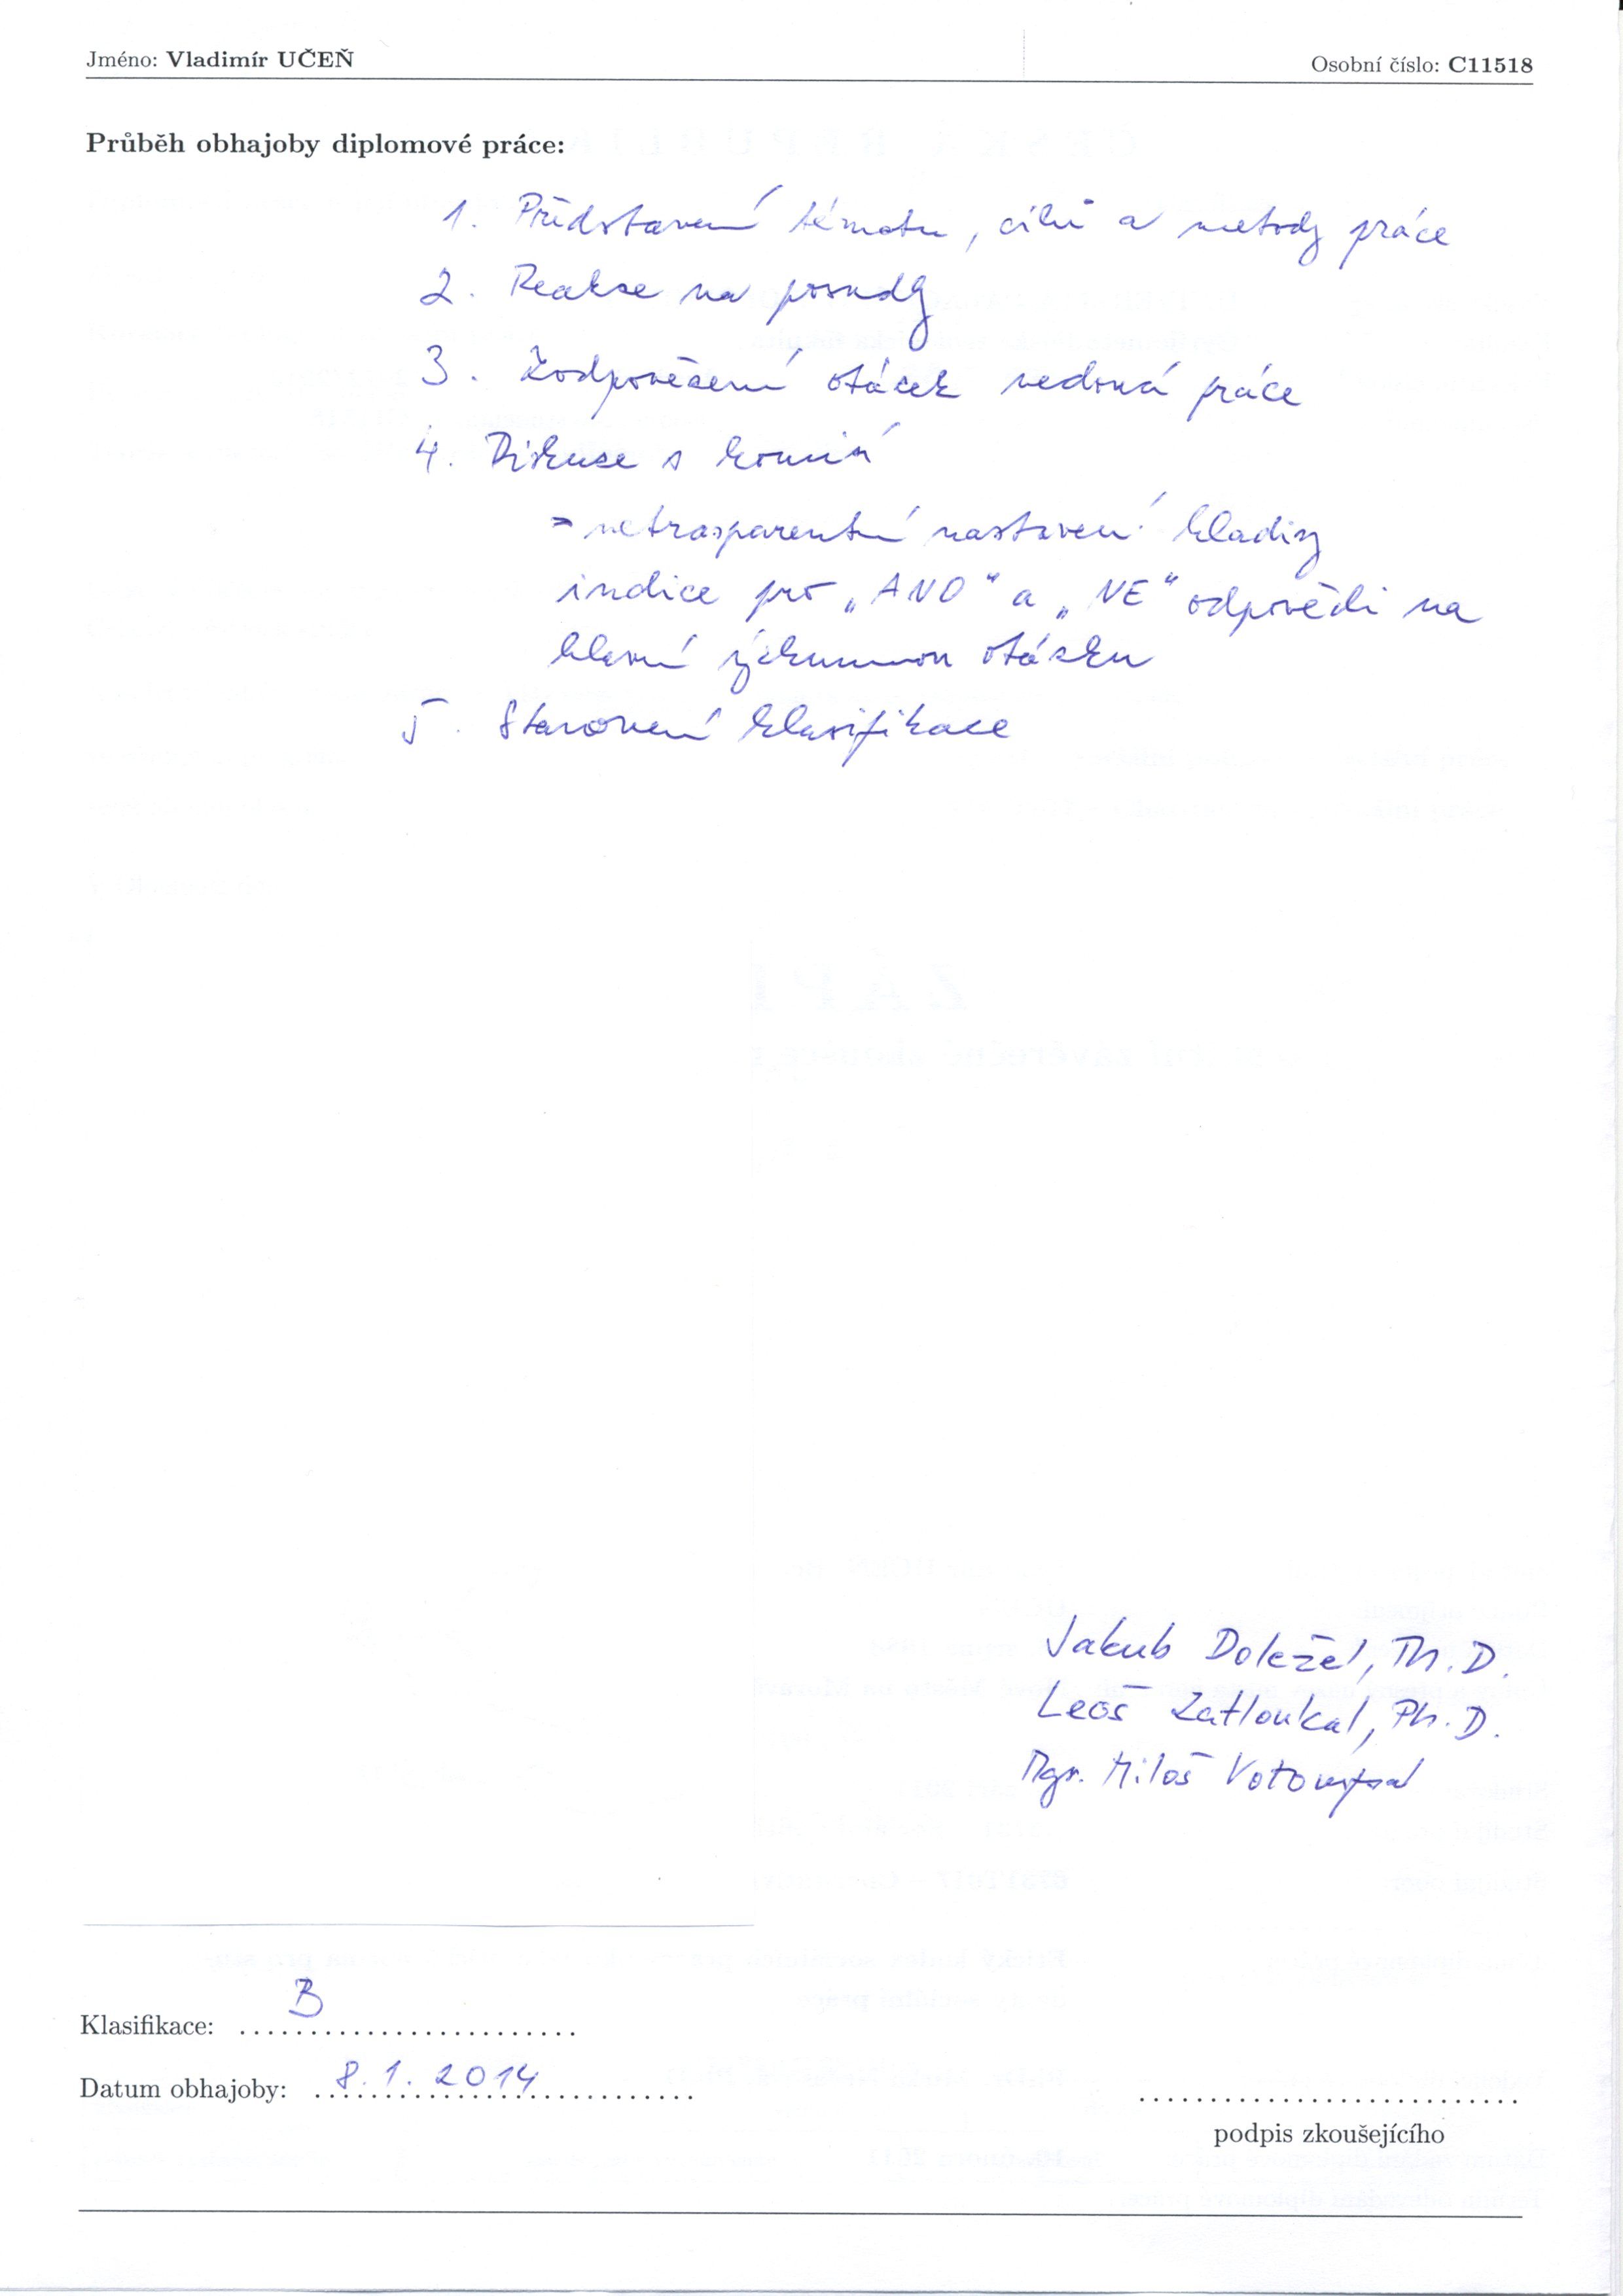 Jméno: Vladimír UČEŇ
Osobní číslo: C11518
Průběh obhajoby diplomové práce:
1. Představení tématu, cílů a metody práce
2. Reakce na posudky
3. Zodpovězení otázek vedoucí práce
4. Diskuse s komisí
netrasparentní nastavení hladiny
indice pro „ANO“ a „NE“ odpovědi na
hlavní výzkumnou otázku
5. Stanovení klasifikace
Jakub Doležel, Th.D.
Leoš Zatloukal, Ph.D.
Mgr. Miloš Votoupal
Klasifikace: B
Datum obhajoby: 8. 1. 2014
podpis zkoušejícího